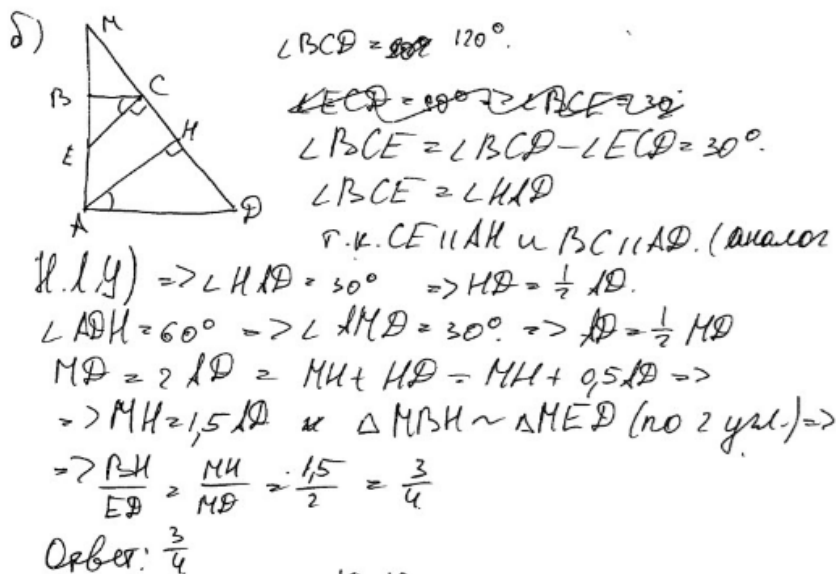 б)
M
B
C
E
H
A
D
∠BCD = 120°.
∠ECD = 90° => ∠BCE = 30
∠BCE = ∠BCD - ∠ECD = 30°.
∠BCE = ∠HAD
т.к. CE || AH и BC || AD. (аналог
Н.Л.У) => ∠HAD = 30° => HD = 1/2 AD.
∠ADH = 60° => ∠AMD = 30°. => AD = 1/2 MD
MD = 2AD = MH + HD = MH + 0,5AD =>
=> MH = 1,5AD и △MBH ~ △MED (по 2 угл.) =>
=> BH/ED = MH/MD = 1,5/2 = 3/4
Ответ: 3/4